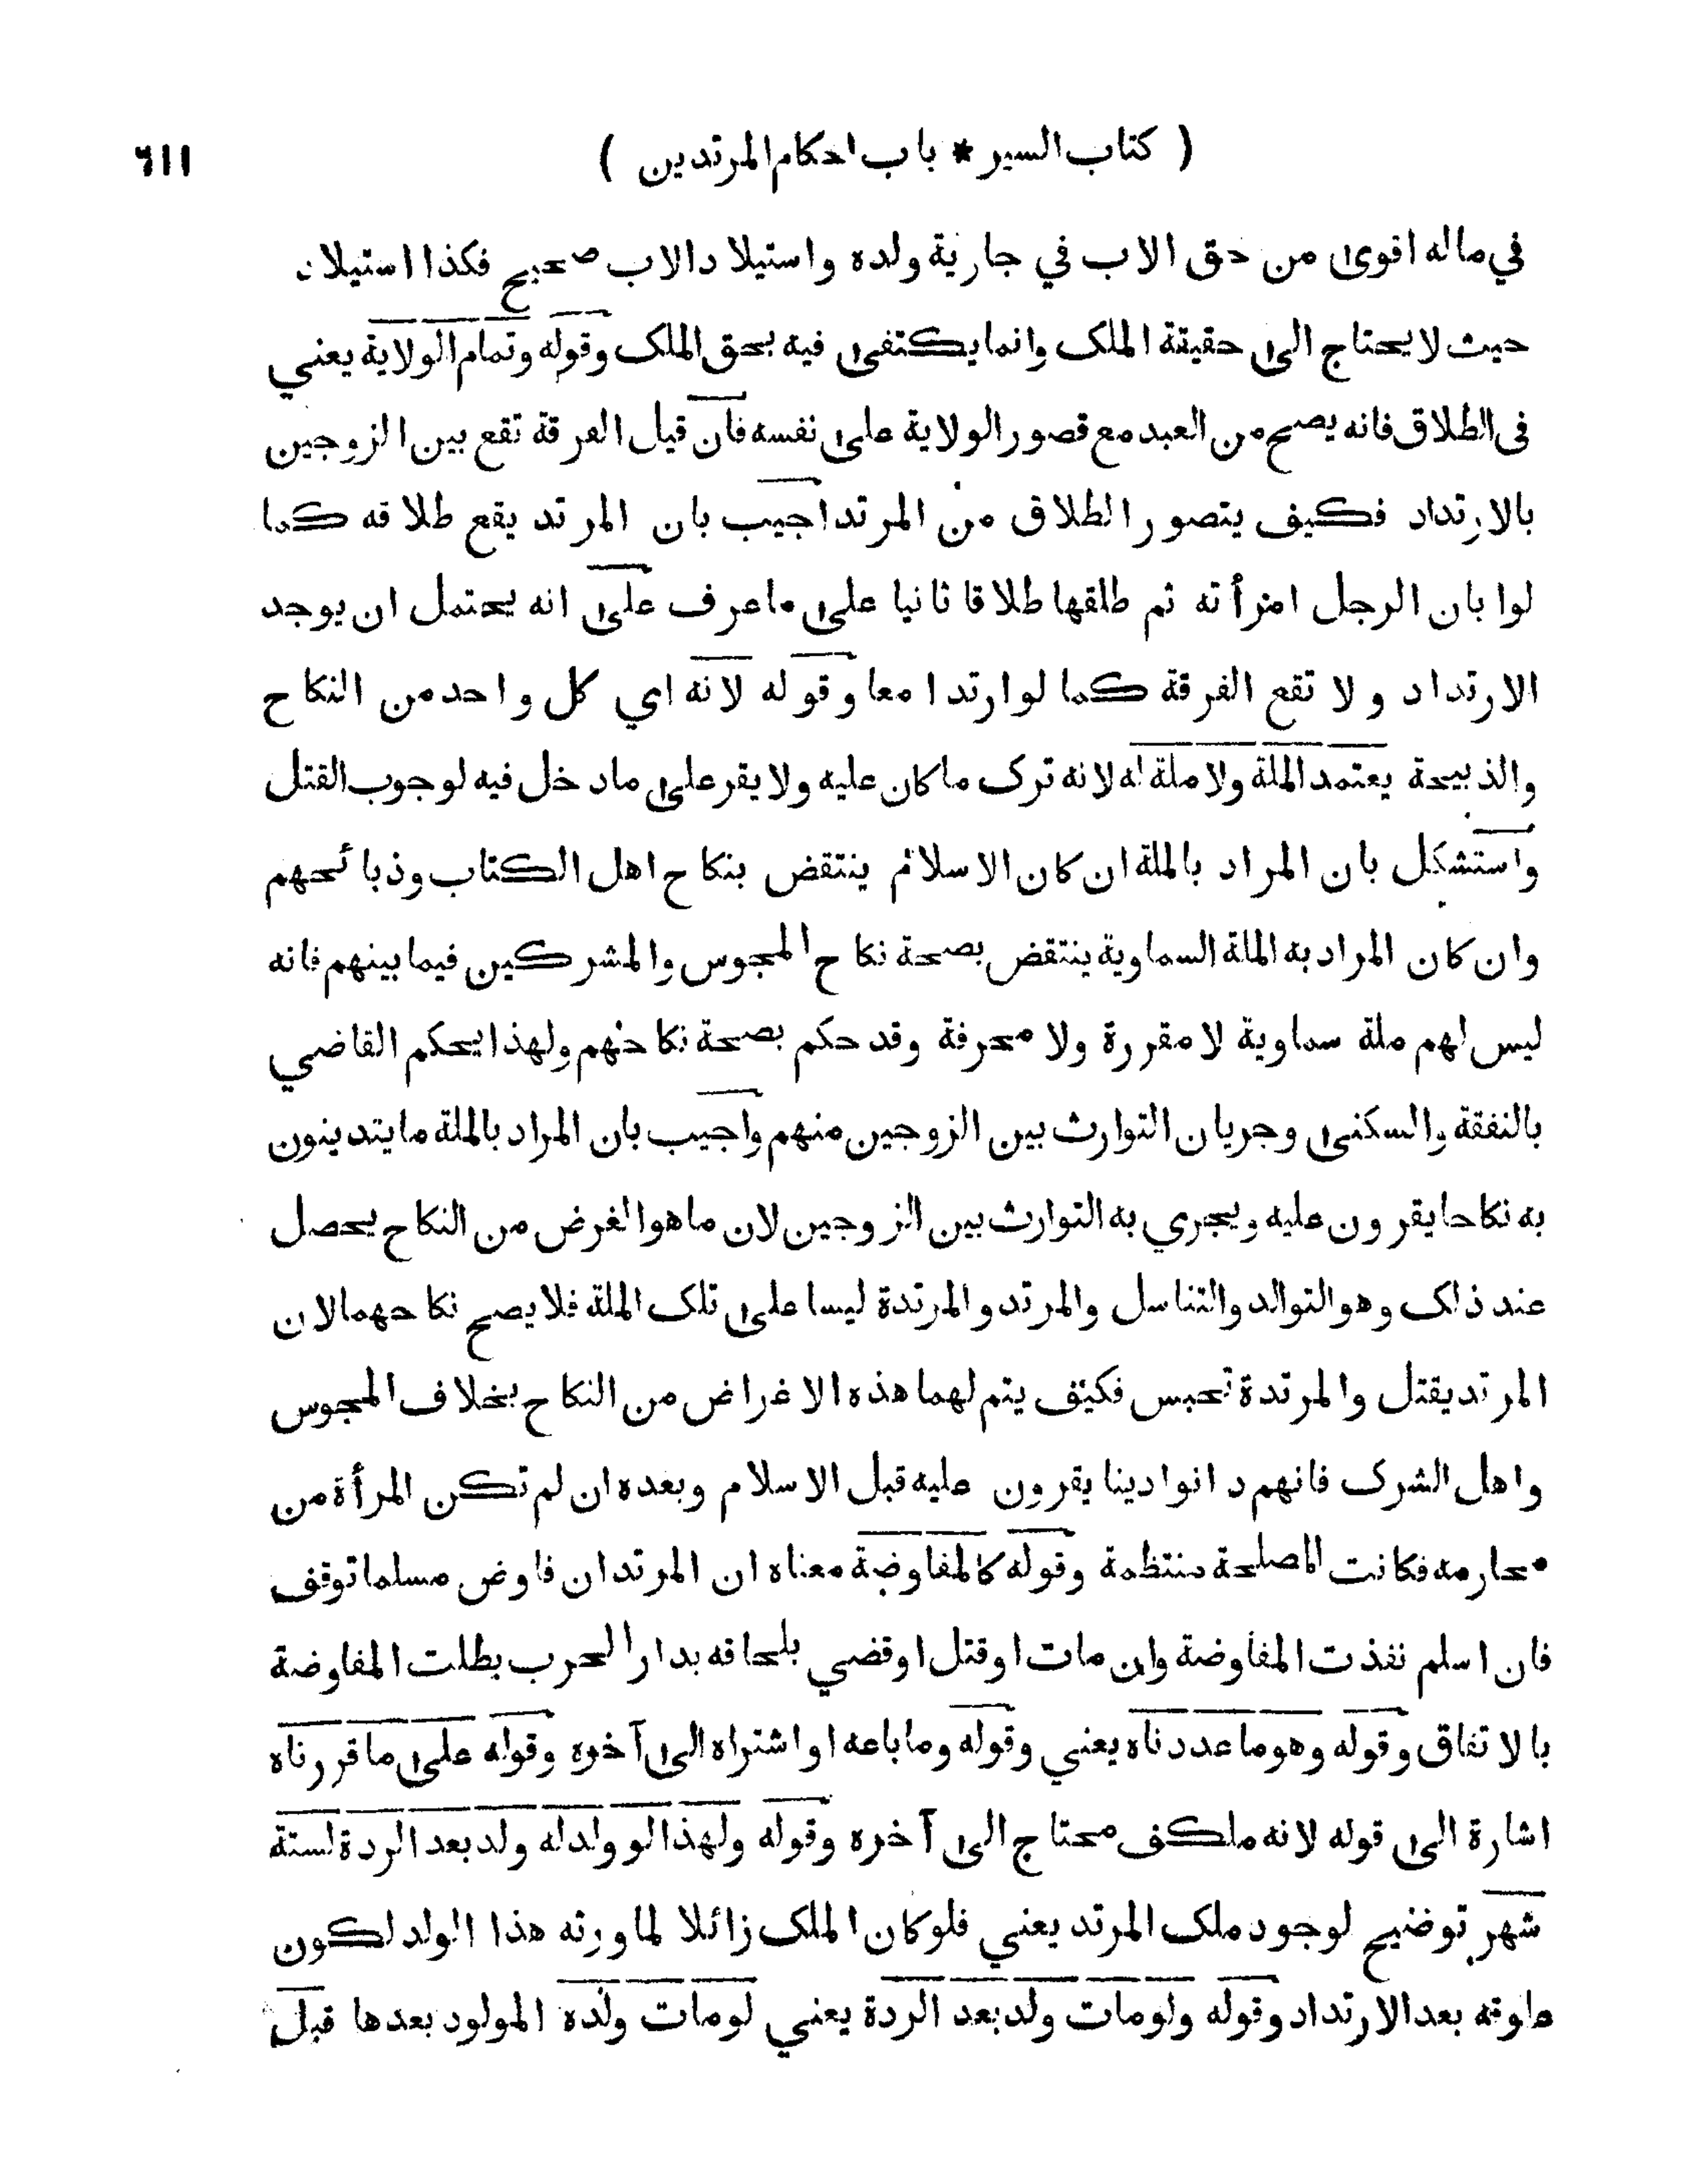 ( كتاب السير * باب احكام المرتدين ) ٦١١
في ماله اقوى من حق الاب في جارية ولده واستيلاد الاب صحيح فكذا استيلاد
حيث لا يحتاج الى حقيقة الملك وانما يكتفى فيه بحق الملك وقوله وتمام الولاية يعني
فى الطلاق فانه يصح من العبد مع قصور الولاية على نفسه فان قيل الفرقة تقع بين الزوجين
بالارتداد فكيف يتصور الطلاق من المرتد اجيب بان المرتد يقع طلاقه كما
لوا بان الرجل امرأته ثم طلقها طلاقا ثانيا على ما عرف على انه يحتمل ان يوجد
الارتداد ولا تقع الفرقة كما لو ارتدا معا وقوله لانه اي كل واحد من النكاح
والذبيحة يعتمد الملة ولا ملة له لانه ترك ما كان عليه ولا يقر على ما دخل فيه لوجوب القتل
واستشكل بان المراد بالملة ان كان الاسلام ينتقض بنكاح اهل الكتاب وذبائحهم
وان كان المراد به الملة السماوية ينتقض بصحة نكاح المجوس والمشركين فيما بينهم فانه
ليس لهم ملة سماوية لا مقررة ولا محرفة وقد حكم بصحة نكاحهم ولهذا يحكم القاضي
بالنفقة والسكنى وجريان التوارث بين الزوجين منهم واجيب بان المراد بالملة ما يتدينون
به نكاحا يقرون عليه ويجري به التوارث بين الزوجين لان ما هو الغرض من النكاح يحصل
عند ذلك وهو التوالد والتناسل والمرتد والمرتدة ليسا على تلك الملة فلا يصح نكاحهما لان
المرتد يقتل والمرتدة تحبس فكيف يتم لهما هذه الاغراض من النكاح بخلاف المجوس
واهل الشرك فانهم دانوا دينا يقرون عليه قبل الاسلام وبعده ان لم تكن المرأة من
محارمه فكانت المصلحة منتظمة وقوله كالمفاوضة معناه ان المرتد ان فاوض مسلما توقف
فان اسلم نفذت المفاوضة وان مات اوقتل اوقضي بلحاقه بدار الحرب بطلت المفاوضة
بالاتفاق وقوله وهو ما عددناه يعني وقوله وما باعه او اشتراه الى آخره وقوله على ما قررناه
اشارة الى قوله لانه مكلف محتاج الى آخره وقوله ولهذا لو ولد له ولد بعد الردة لستة
شهر توضيح لوجود ملك المرتد يعني فلو كان الملك زائلا لما ورثه هذا الولد لكون
علوقه بعد الارتداد وقوله ولو مات ولد بعد الردة يعني لو مات ولده المولود بعدها قبل